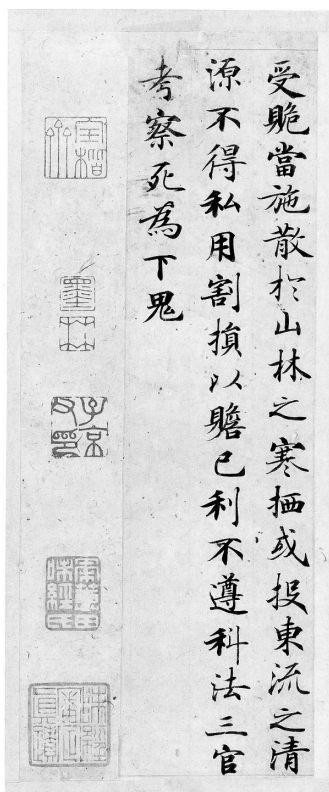 受賄當施散於山林之寒栖或投東流之清
源不得私用割損以贍己利不遵科法三官
考察死為下鬼
子京